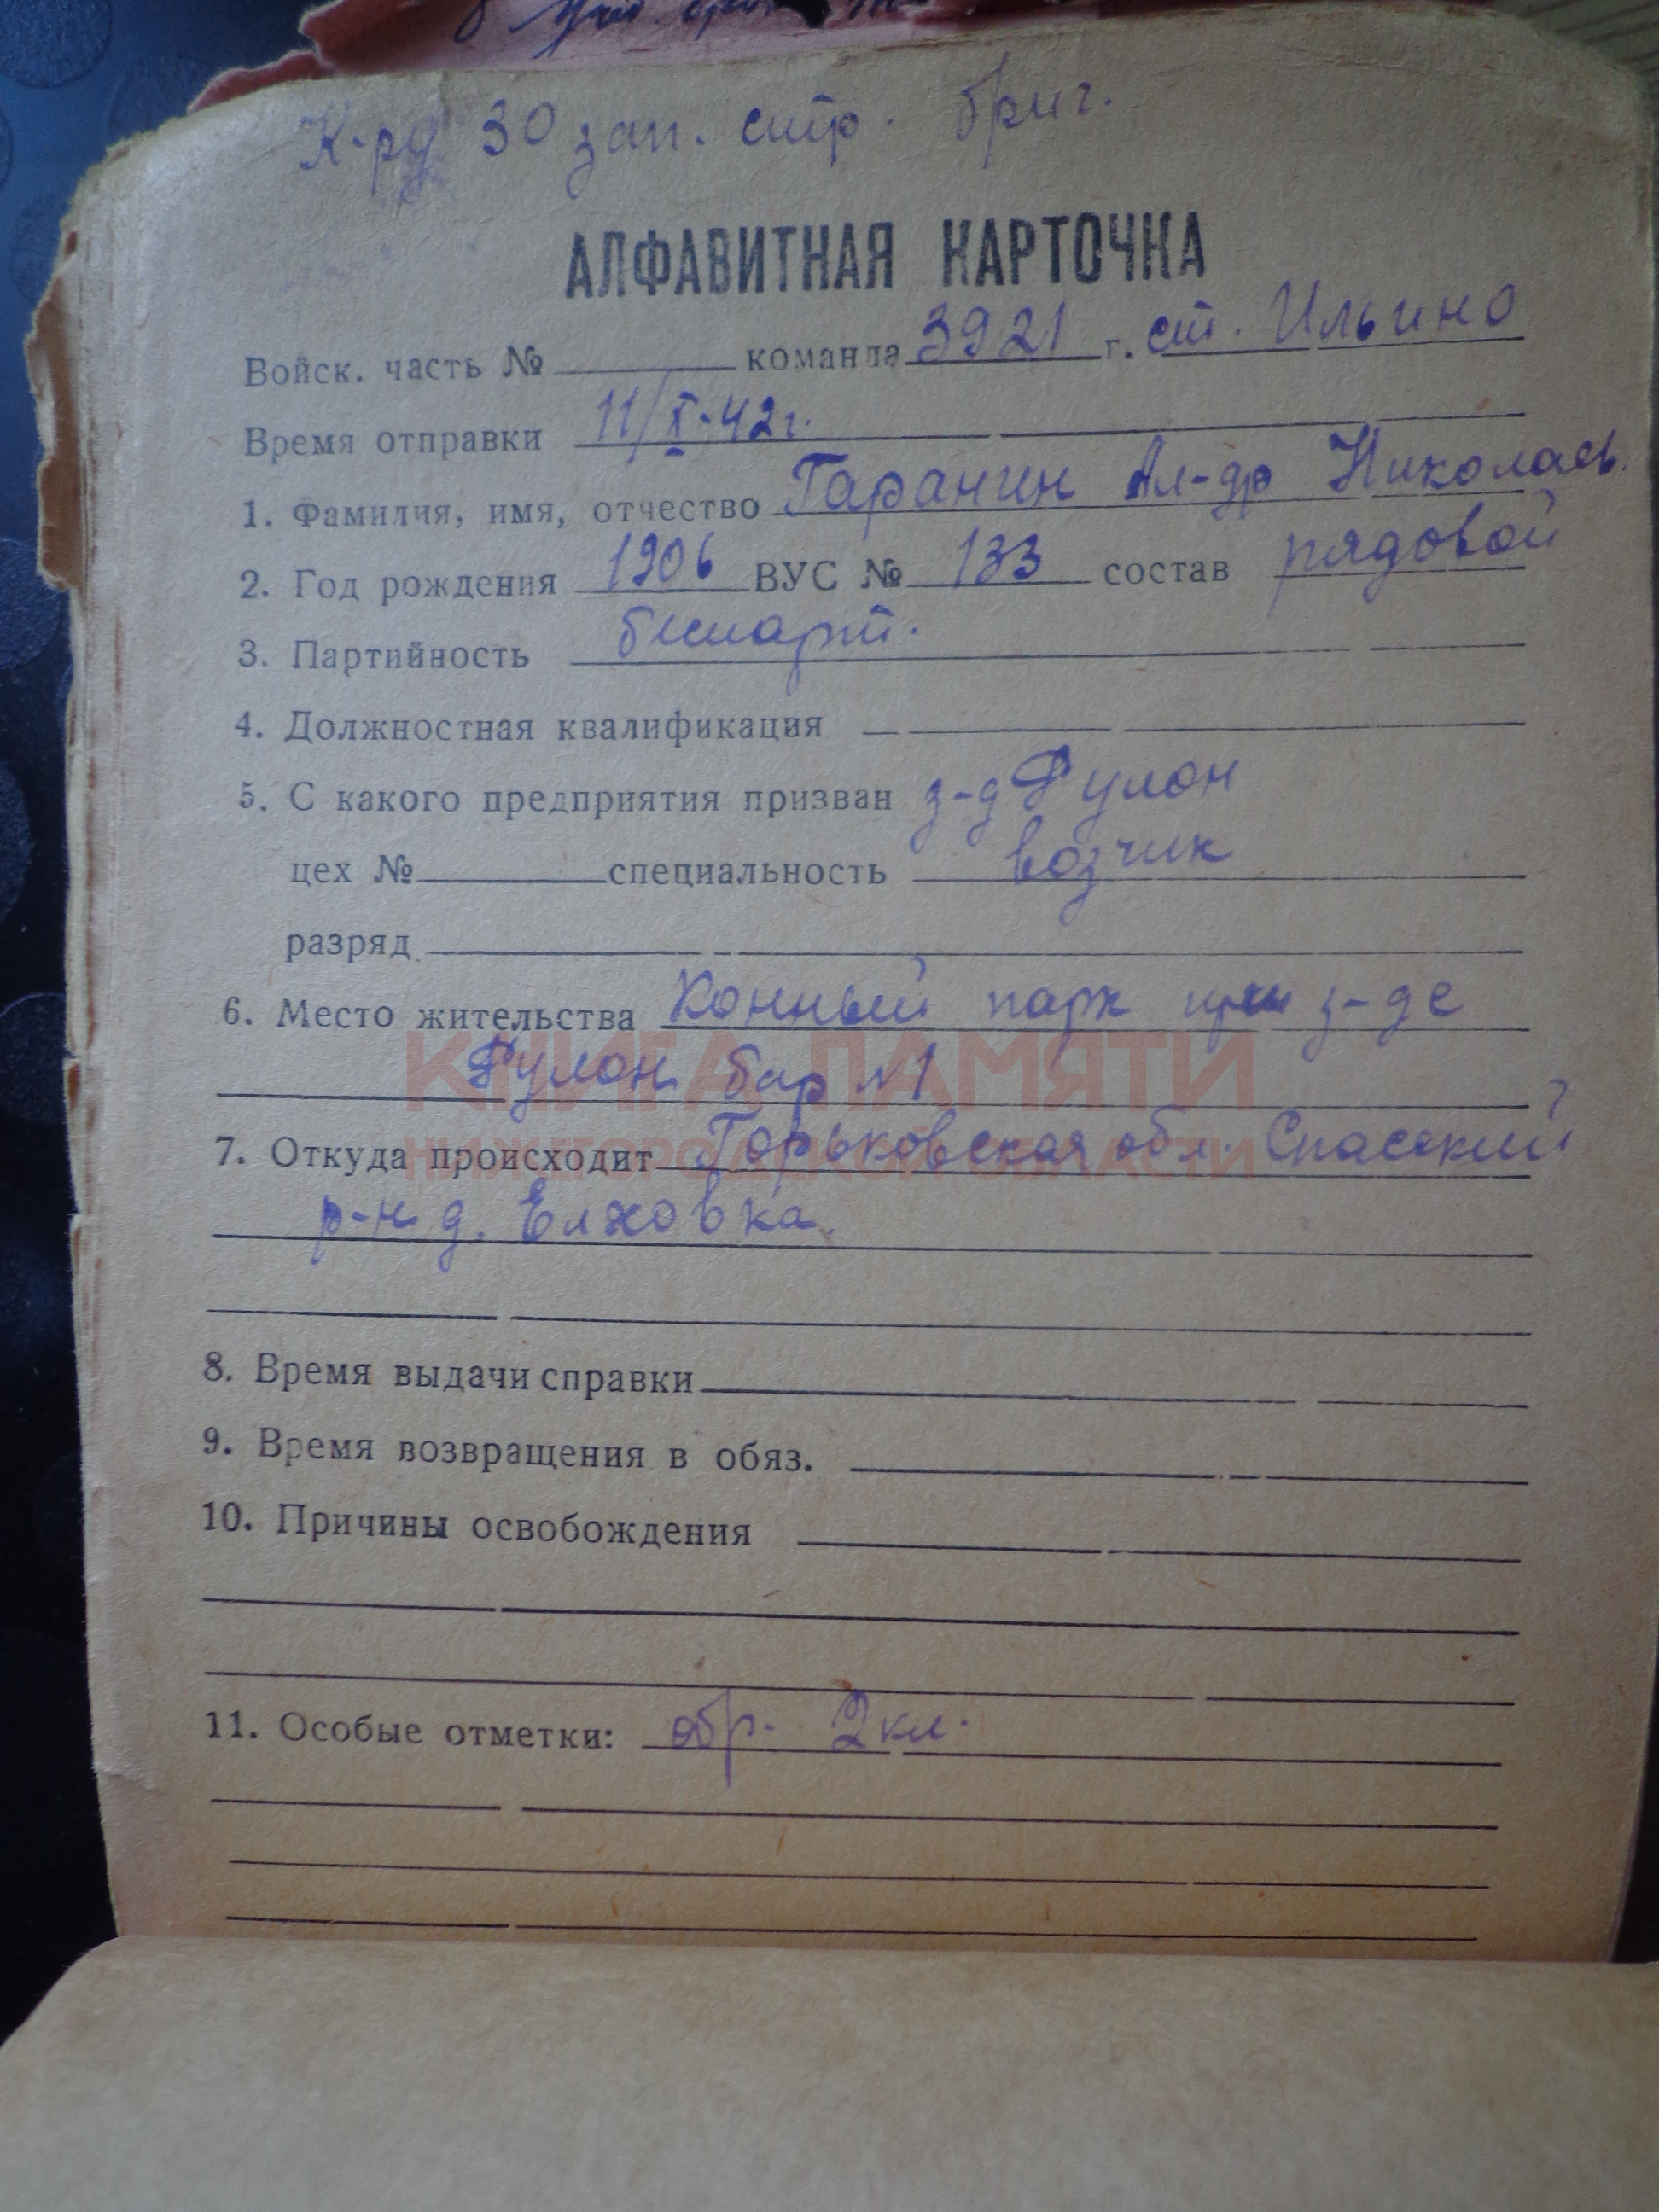 К-ру 30 зап. стр. бриг.
АЛФАВИТНАЯ КАРТОЧКА
Войск. часть № команда 3921 г. ст. Ильино
Время отправки 11/X-42г.
1. Фамилия, имя, отчество Гаранин Ал-др Николаев.
2. Год рождения 1906 ВУС № 133 состав рядовой
3. Партийность беспарт.
4. Должностная квалификация
5. С какого предприятия призван з-д Рулон
цех № специальность возчик
разряд
6. Место жительства Конный парк при з-де
Рулон бар №1
КНИГА ПАМЯТИ
7. Откуда происходит Горьковская обл. Спасский
НИЖЕГОРОДСКОЙ ОБЛАСТИ
р-н д. Елховка.
8. Время выдачи справки
9. Время возвращения в обяз.
10. Причины освобождения
11. Особые отметки: обр. 2 кл.